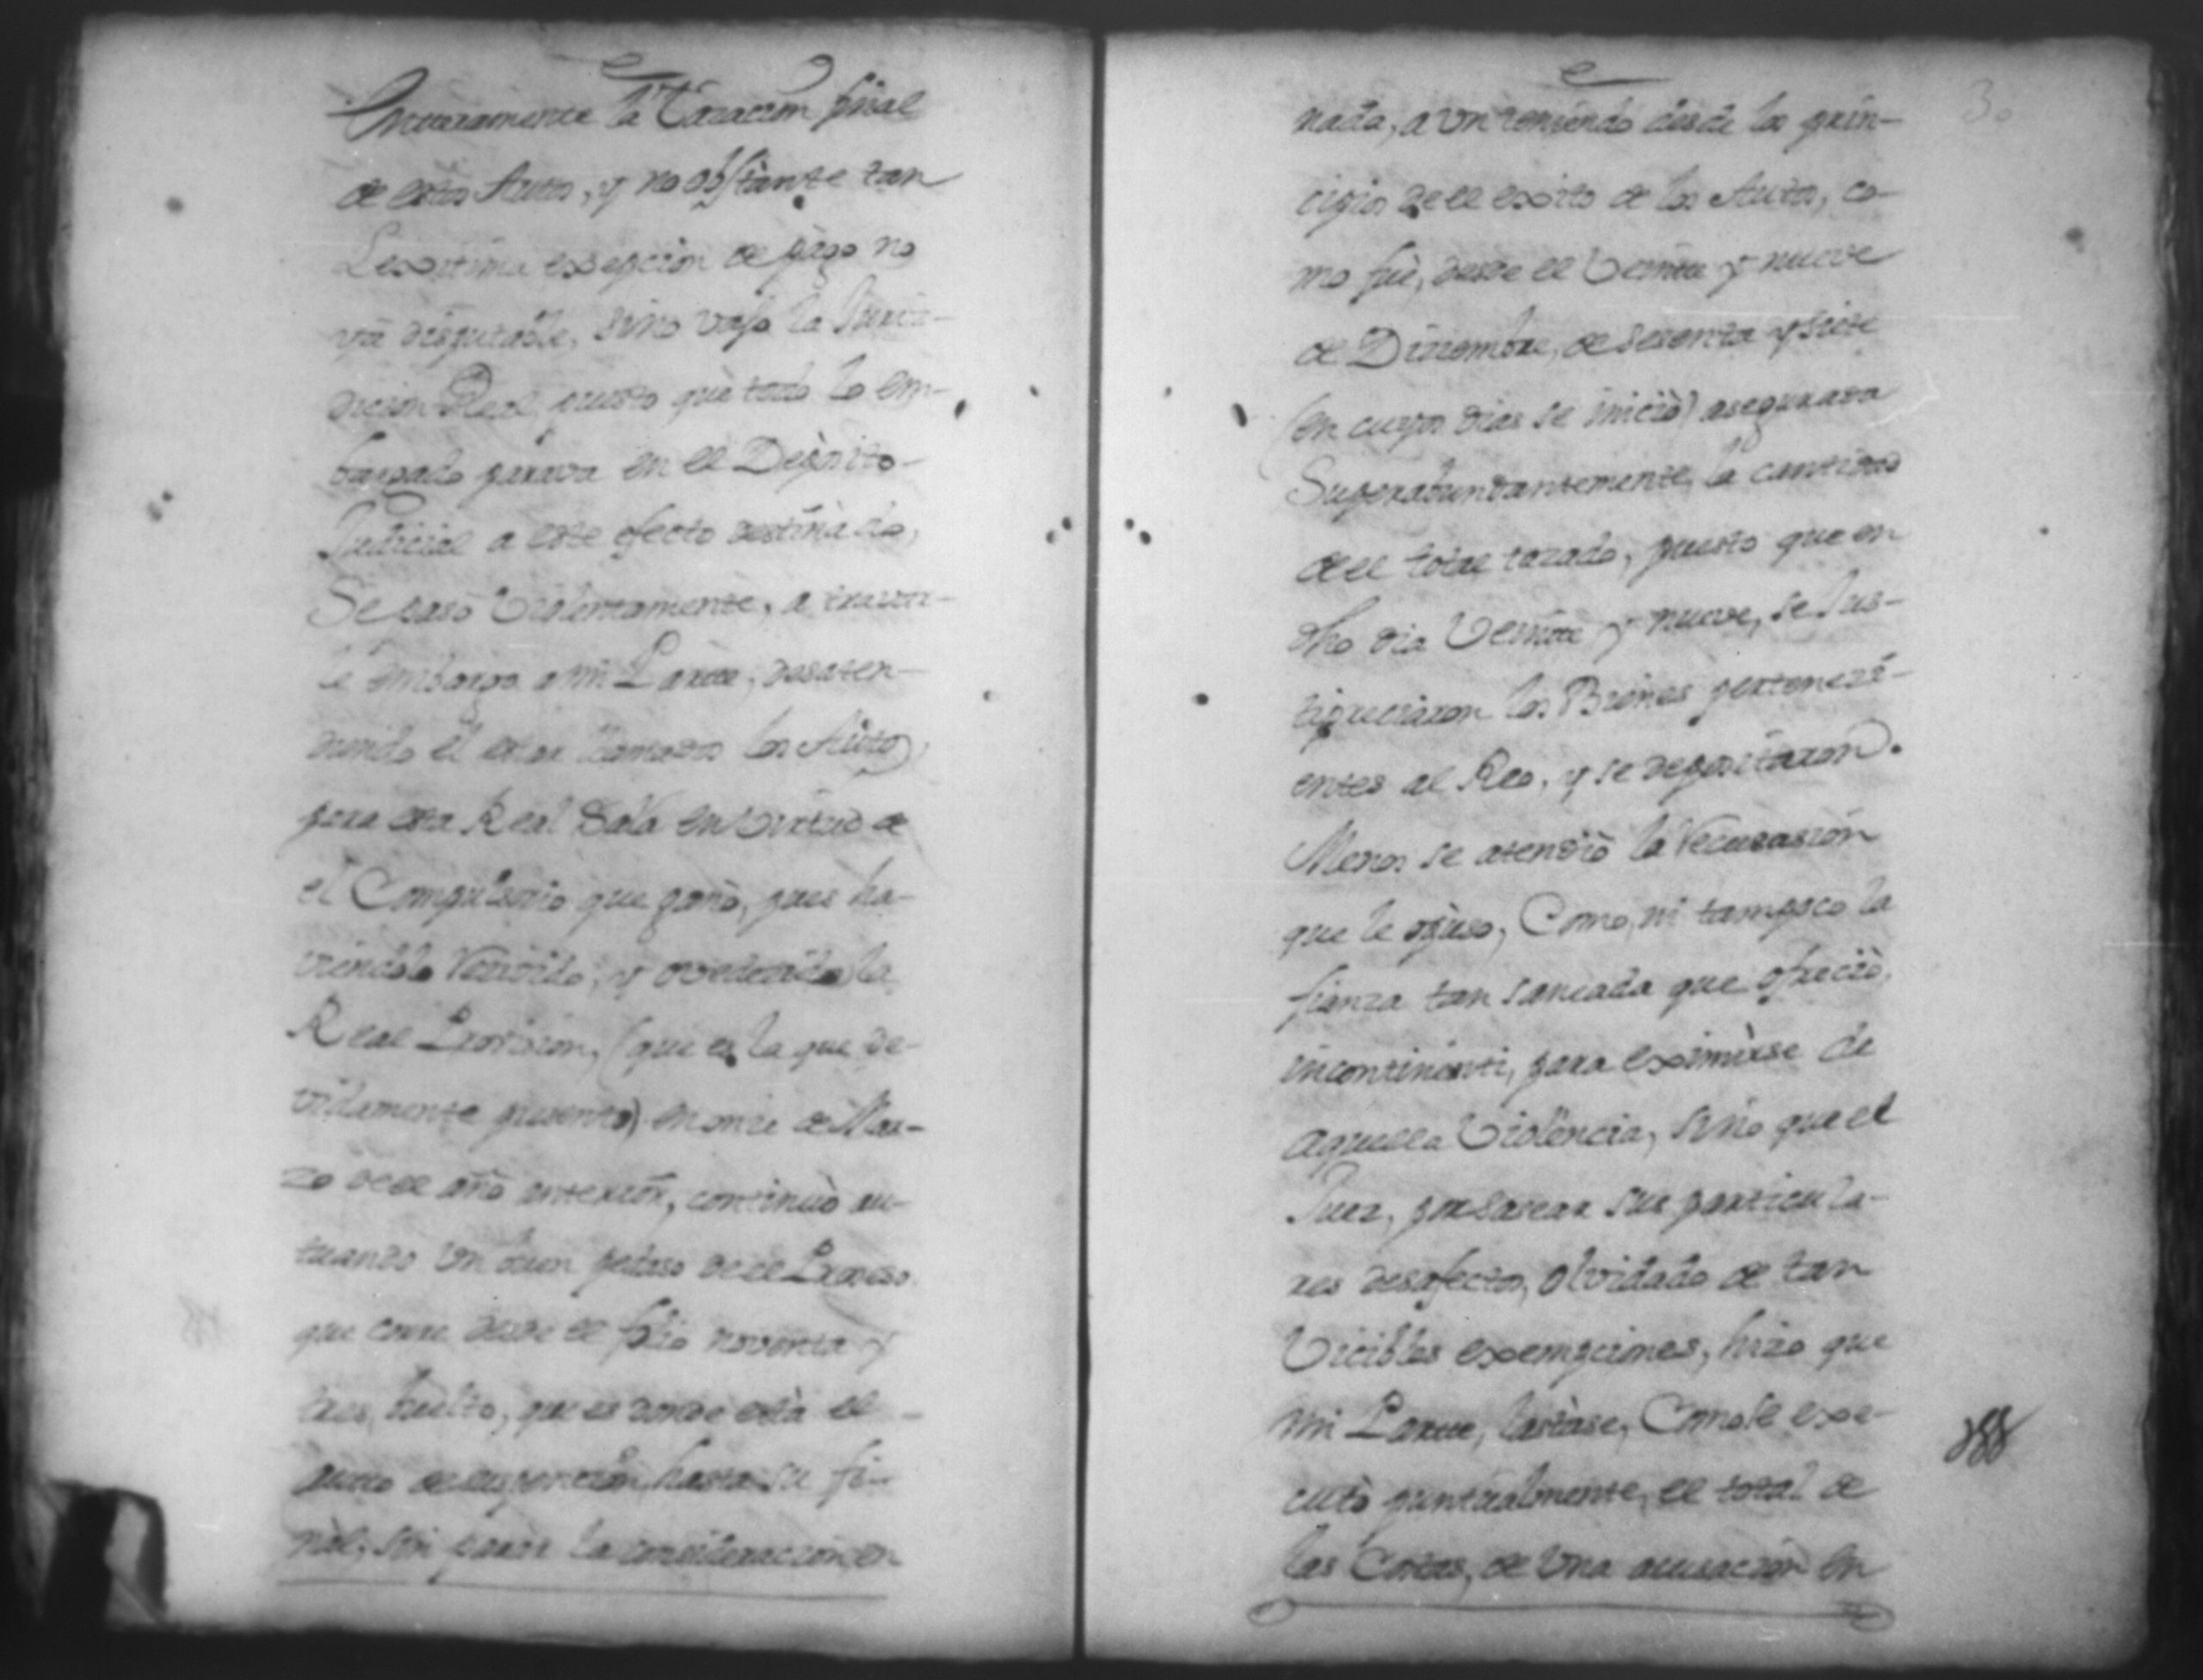 Enteramente la Tazacion final
de estos Autos, y no obstante tan
Lexitima exsepcion de pago no
ya disputable, sino vajo la Juris-
diccion Real, puesto que todo lo em-
bargado parava en el Deposito
Judicial a este efecto destinado,
Se paso Violentamente, a
le embargo a mi Parte, desaten-
diendo el estar llamados los Autos,
para esta Real Sala en Virtud de
el Compulsorio que gano, pues ha-
viendole Recivido, y ovedecido la
Real Provicion, (que es la que de-
vidamente presento) en onze de Mar-
zo de el año anterior, continuò au-
tuando Un buen pedaso de el Proceso
que corre desde el folio noventa y
tres buelto, que es donde està el
auto de suspencion, hasta su fi-
nal, sin parar la concideracion en
30
nada, a un teniendo desde los prin-
cipios de el exsito de los Autos, co-
mo fuè, desde el Veinte y nueve
de Diziembre, de sesenta y siete
(en cuyos dias se iniciò) asegurada
Superabundantemente, la cantidad
de el total tazado, puesto que en
dho dia Veinte y nueve, se Jus-
tipreciaron los Bienes pertenezi-
entes al Reo, y se depositaron.
Menos se atendiò la Recusasion
que le opuso, Como, ni tampoco la
fianza tan saneada que ofreciò,
incontinenti, para eximirse de
aquella Violencia, sino que el
Juez, por sasear sus particula-
res desafectos, olvidado de tan
Vicibles exsempciones, hizo que
mi Parte, lastase, Como se exe-
cutò puntualmente, el total de
las Costas, de Una acusacion en
188